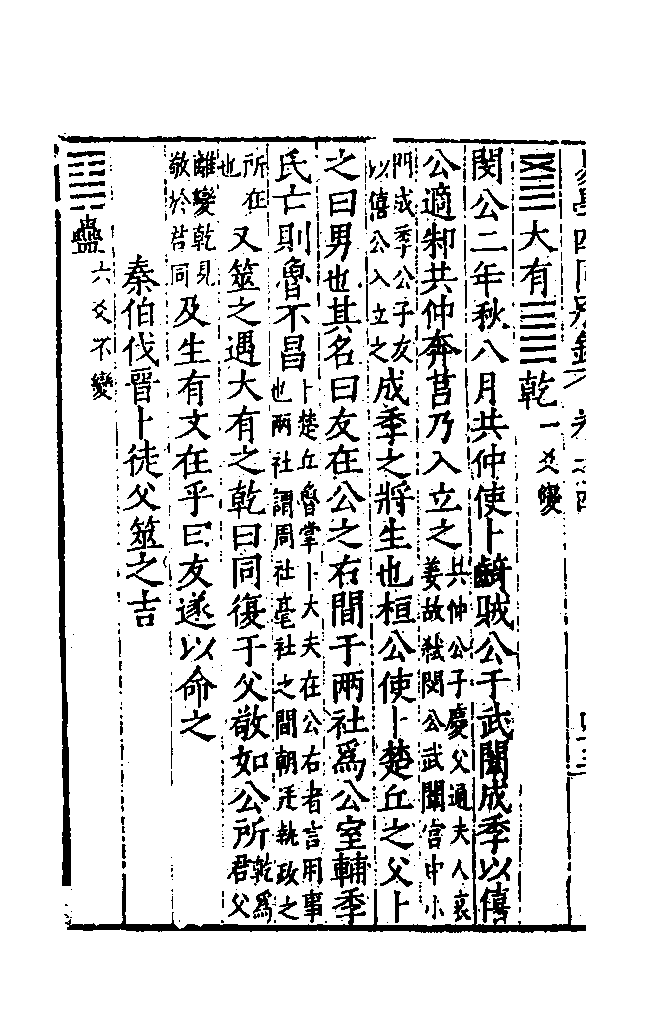 易學四同別錄 卷之四
大有 乾 一爻變
閔公二年秋八月共仲使卜齮賊公于武闈成季以僖
公適邾共仲奔莒乃入立之共仲公子慶父通夫人哀姜故弒閔公武闈宮中小
門成季公子友以僖公入立之成季之將生也桓公使卜楚丘之父卜
之曰男也其名曰友在公之右間于兩社為公室輔季
氏亡則魯不昌卜楚丘魯掌卜大夫在公右者言用事也兩社謂周社亳社之間朝廷執政之
所在也又筮之遇大有之乾曰同復于父敬如公所乾為君父
離變乾見敬於君同及生有文在乎曰友遂以命之
秦伯伐晉卜徒父筮之吉
蠱 六爻不變